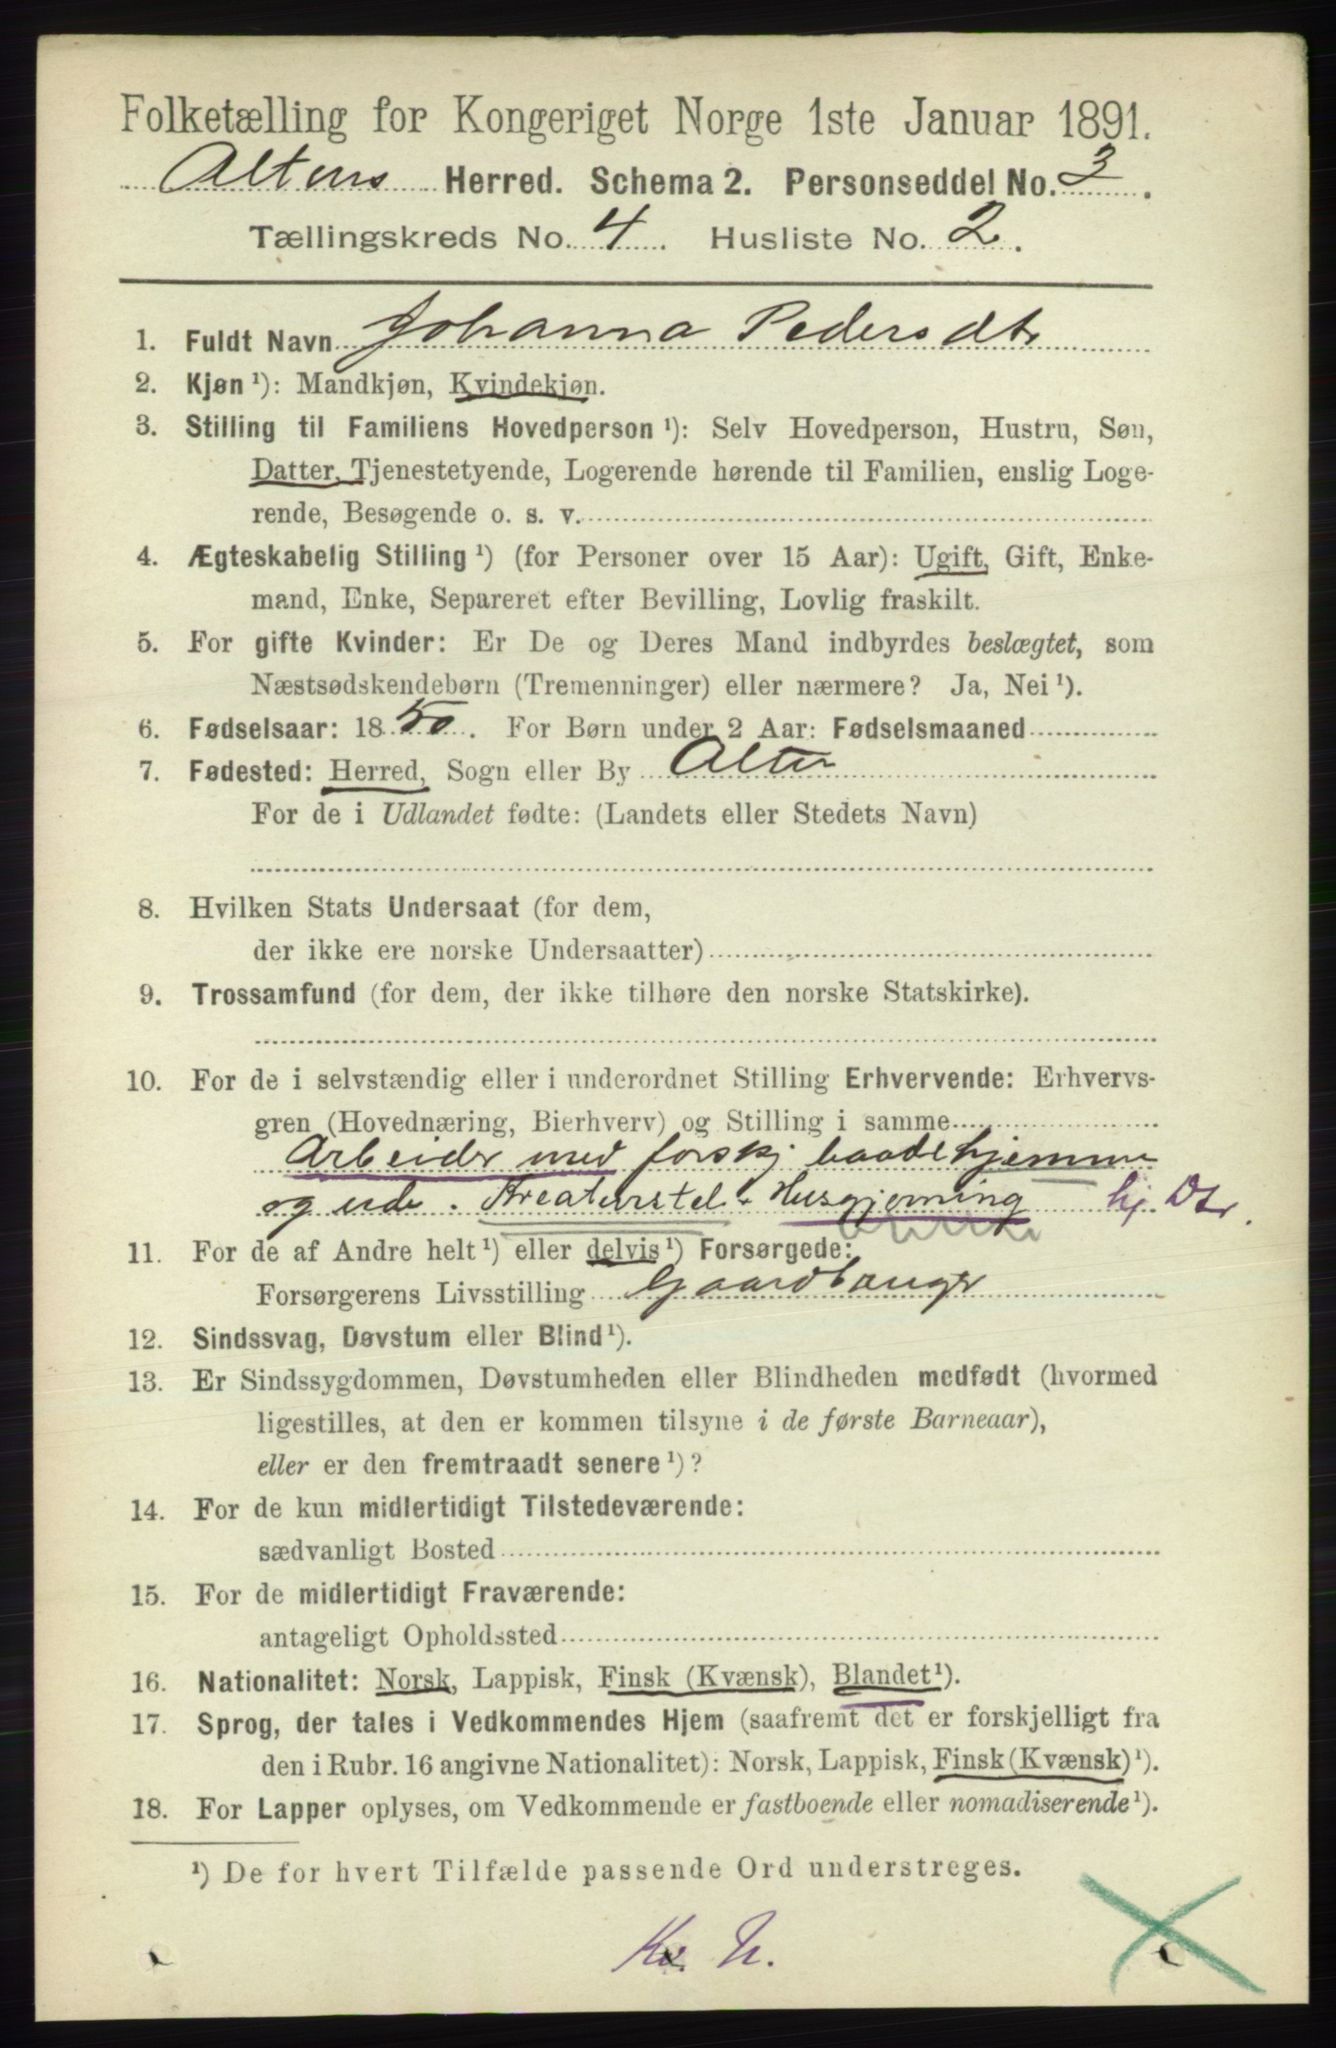 Folketælling for Kongeriget Norge 1ste Januar 1891.
Altens Herred. Schema 2. Personseddel No. 3.
Tællingskreds No. 4. Husliste No. 2.
1. Fuldt Navn Johanna Pedersdtr
2. Kjøn ¹): Mandkjøn, Kvindekjøn.
3. Stilling til Familiens Hovedperson ¹): Selv Hovedperson, Hustru, Søn,
Datter, Tjenestetyende, Logerende hørende til Familien, enslig Loge-
rende, Besøgende o. s. v.
4. Ægteskabelig Stilling ¹) (for Personer over 15 Aar): Ugift, Gift, Enke-
mand, Enke, Separeret efter Bevilling, Lovlig fraskilt.
5. For gifte Kvinder: Er De og Deres Mand indbyrdes beslægtet, som
Næstsødskendebørn (Tremenninger) eller nærmere? Ja, Nei ¹).
6. Fødselsaar: 1850. For Børn under 2 Aar: Fødselsmaaned
7. Fødested: Herred, Sogn eller By Alten
For de i Udlandet fødte: (Landets eller Stedets Navn)
8. Hvilken Stats Undersaat (for dem,
der ikke ere norske Undersaatter)
9. Trossamfund (for dem, der ikke tilhøre den norske Statskirke).
10. For de i selvstændig eller i underordnet Stilling Erhvervende: Erhvervs-
gren (Hovednæring, Bierhverv) og Stilling i samme
Arbeider med forskj baade hjemme
og ude. Kreaturstel. Husgjerning hj. Dtr.
11. For de af Andre helt ¹) eller delvis ¹) Forsørgede:
Forsørgerens Livsstilling Gaardbruger
12. Sindssvag, Døvstum eller Blind ¹).
13. Er Sindssygdommen, Døvstumheden eller Blindheden medfødt (hvormed
ligestilles, at den er kommen tilsyne i de første Barneaar),
eller er den fremtraadt senere ¹)?
14. For de kun midlertidigt Tilstedeværende:
sædvanligt Bosted
15. For de midlertidigt Fraværende:
antageligt Opholdssted
16. Nationalitet: Norsk, Lappisk, Finsk (Kvænsk), Blandet ¹).
17. Sprog, der tales i Vedkommendes Hjem (saafremt det er forskjelligt fra
den i Rubr. 16 angivne Nationalitet): Norsk, Lappisk, Finsk (Kvænsk) ¹).
18. For Lapper oplyses, om Vedkommende er fastboende eller nomadiserende ¹).
¹) De for hvert Tilfælde passende Ord understreges.
Kv. N.